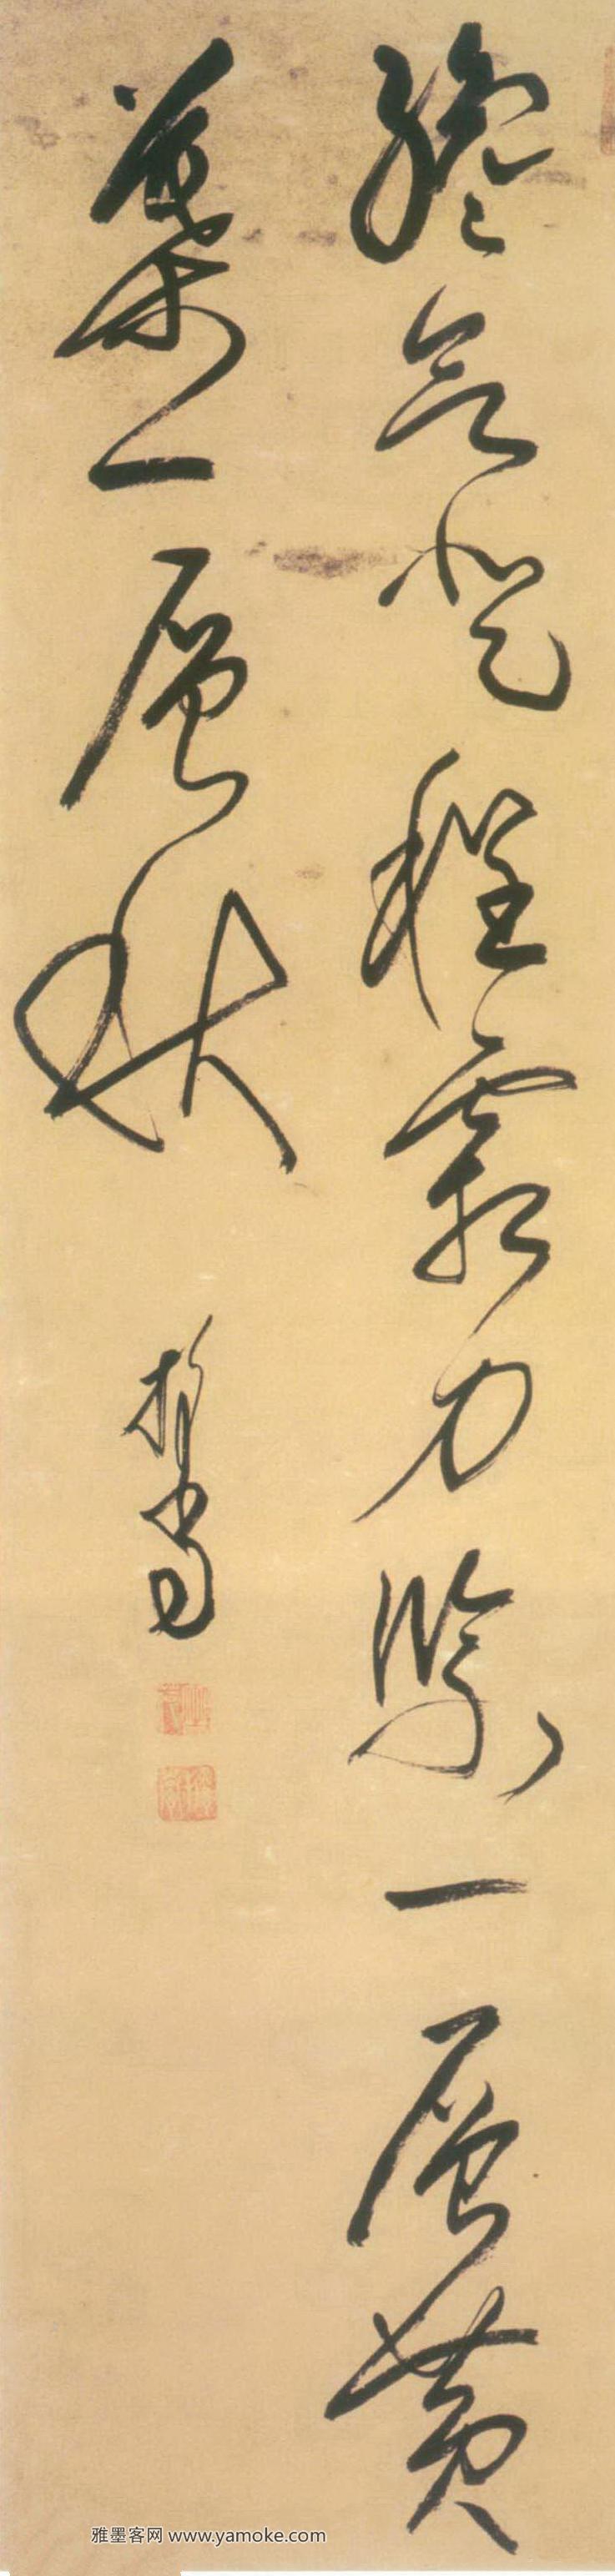 程霜力緊一層黃
葉一層秋
擔當
雅墨客网 www.yamoke.com